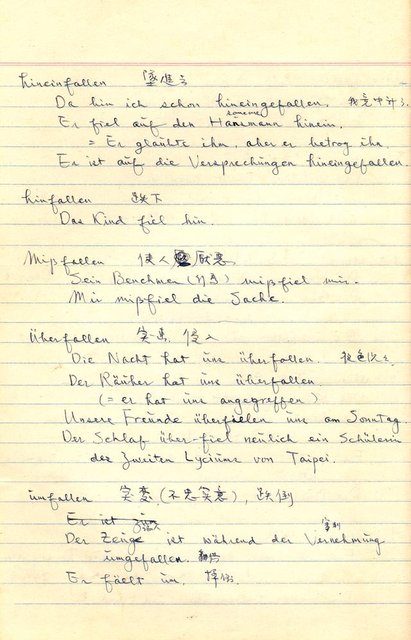 hineinfallen
Da bin ich schon hineingefallen. 我竟中计了
someone
Er fiel auf den Hansmann hinein.
= Er glaubte ihm, aber er betrog ihn.
Er ist auf die Versprechungen hineingefallen.
hinfallen 跌下
Das Kind fiel hin.
Mißfallen 使人 厭惡
Sein Benehmen (行為) mißfiel mir.
Mir mißfiel die Sache.
Überfallen 突患, 侵入
Die Nacht hat uns überfallen.
Der Räuber hat uns überfallen
(= er hat uns angegreffen)
Unsere Freunde überfielen uns am Sonntag.
Der Schlaf über-fiel neulich ein Schülerin
des Zweiten Lyciums von Taipei.
umfallen 突变 (不忠实意), 跌倒
Er ist
Der Zeuge ist während der Vernehmung
umgefallen.
Er fäellt um.